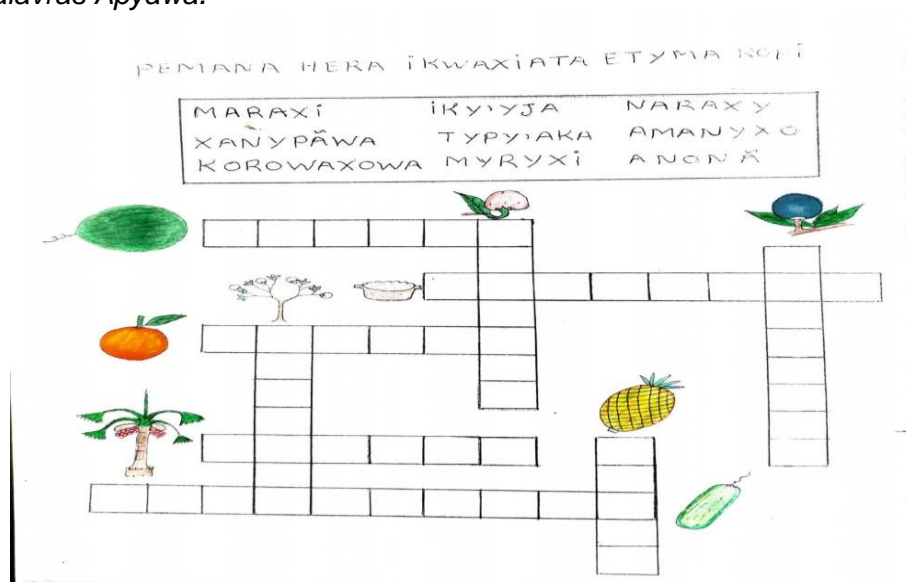 alavras Apyãwa.
PEMANA HERA ÏKWAXIATA ETYMA KOPÏ
MARAXÏ ÏKY'YJA NARAXY
XANYPÃWA TYPY'AKA AMANYXO
KOROWAXOWA MYRYXÏ ANONÃ